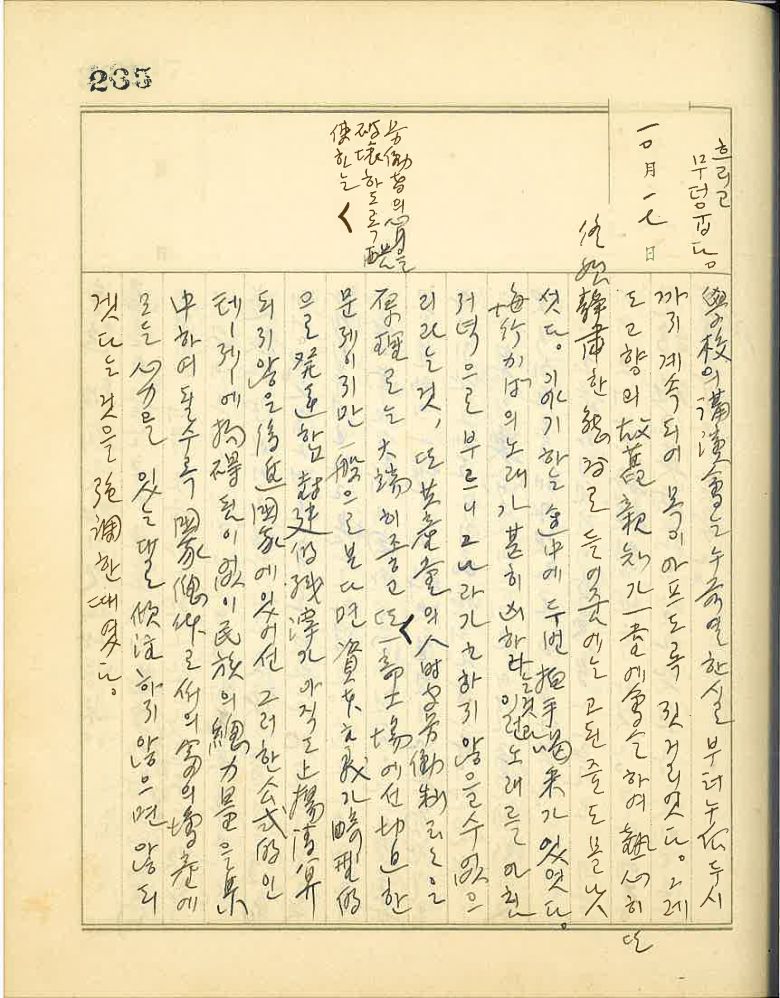 235
흐리고
무덥습니다。
一〇月 一七日
學校의 講演會는 午前 열한실 부터 午后 두시
까지 계속되어 목이 아프도록 짓거리엿다。그레
도 고향의 故舊親知가 一堂에 會合하여 熱心히 또
始終 靜肅한 態度로 들어줌에는 고된줄도 몰낫
섯다。이야기하는 途中에 두번 拍手喝采가 있엇다。
의 노래가 甚히 凶하다는것과 이런노래를 아침
저녁으로 부르니 그나라가 亡하지 않을수 없으
리라는 것, 또 共産黨의 八時間勞働制라는 것은
原理로는 大端히 좋고 또 < 一部 工場에선 切迫한
勞働者의 心身을
破壞하도록 酷
使하는 <
문제이지만 一般으로 본다면 資本主義가 的
으로 發達함 封建的 殘滓가 아직도 上揚淸算
되지않은 後進國家에 있어선 그러한 公式的인
테-제-에 됨이 없이 民族의 總力量을 集
中하여 될수록 國家總体로서의 富의 增産에
모든 心力을 있는대로 傾注하지 않으면 않되
겟다는 것을 强調한 때엿다。